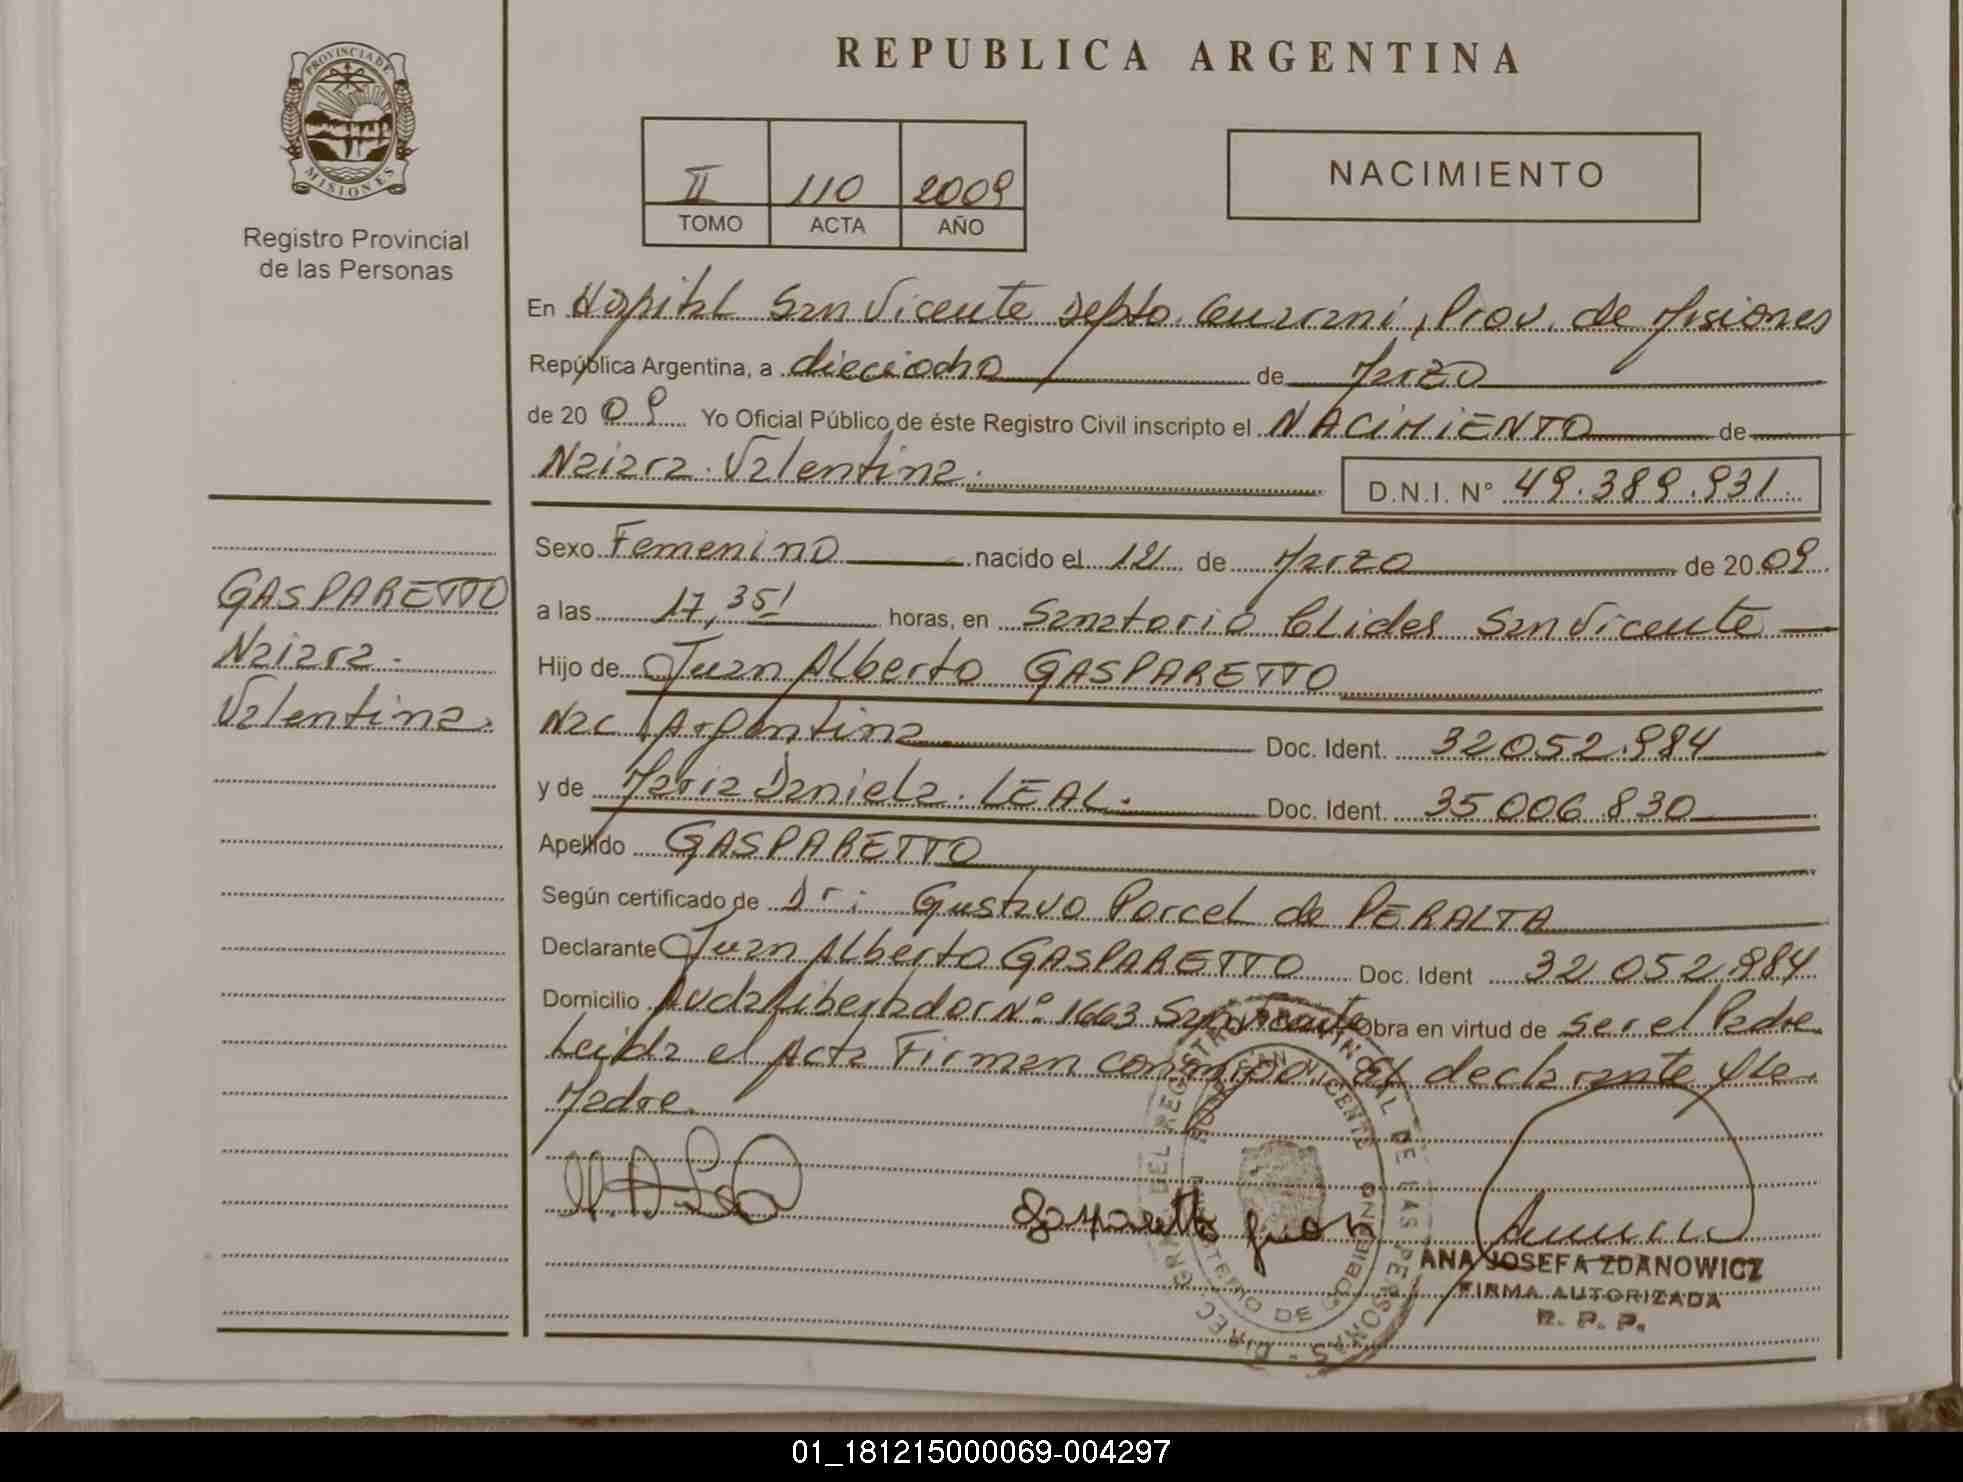 REPUBLICA ARGENTINA
PROVINCIA DE MISIONES
Registro Provincial
de las Personas
II 110 2009
TOMO ACTA AÑO
NACIMIENTO
En Hospital San Vicente Depto. Guarani, Prov. de Misiones
República Argentina, a dieciocho de Marzo
de 20 09 Yo Oficial Público de éste Registro Civil inscripto el NACIMIENTO de
Naiara Valentina. D.N.I. N° 49.389.931
GASPARETTO
Naiara
Valentina.
Sexo Femenino nacido el 12 de Marzo de 20 09
a las 17,35 horas, en Sanatorio San Vicente
Hijo de Juan Alberto GASPARETTO
Nac Argentina Doc. Ident. 32052.984
y de Maria Daniela LEAL. Doc. Ident. 35006830
Apellido GASPARETTO
Según certificado de Dr: Gustavo Porcel de PERALTA
Declarante Juan Alberto GASPARETTO Doc. Ident 32052984
Domicilio Avda Libertador N° 1663 San Vicente Obra en virtud de ser el Padre
Leida el Acta Firman conmigo El declarante y la
Madre.
Gasparetto Juan
DIREC GRAL DEL REGISTRO PROVINCIAL DE LAS PERSONAS
SAN VICENTE
MINISTERIO DE GOBIERNO
ANA JOSEFA ZDANOWICZ
FIRMA AUTORIZADA
R. P. P.
01_181215000069-004297